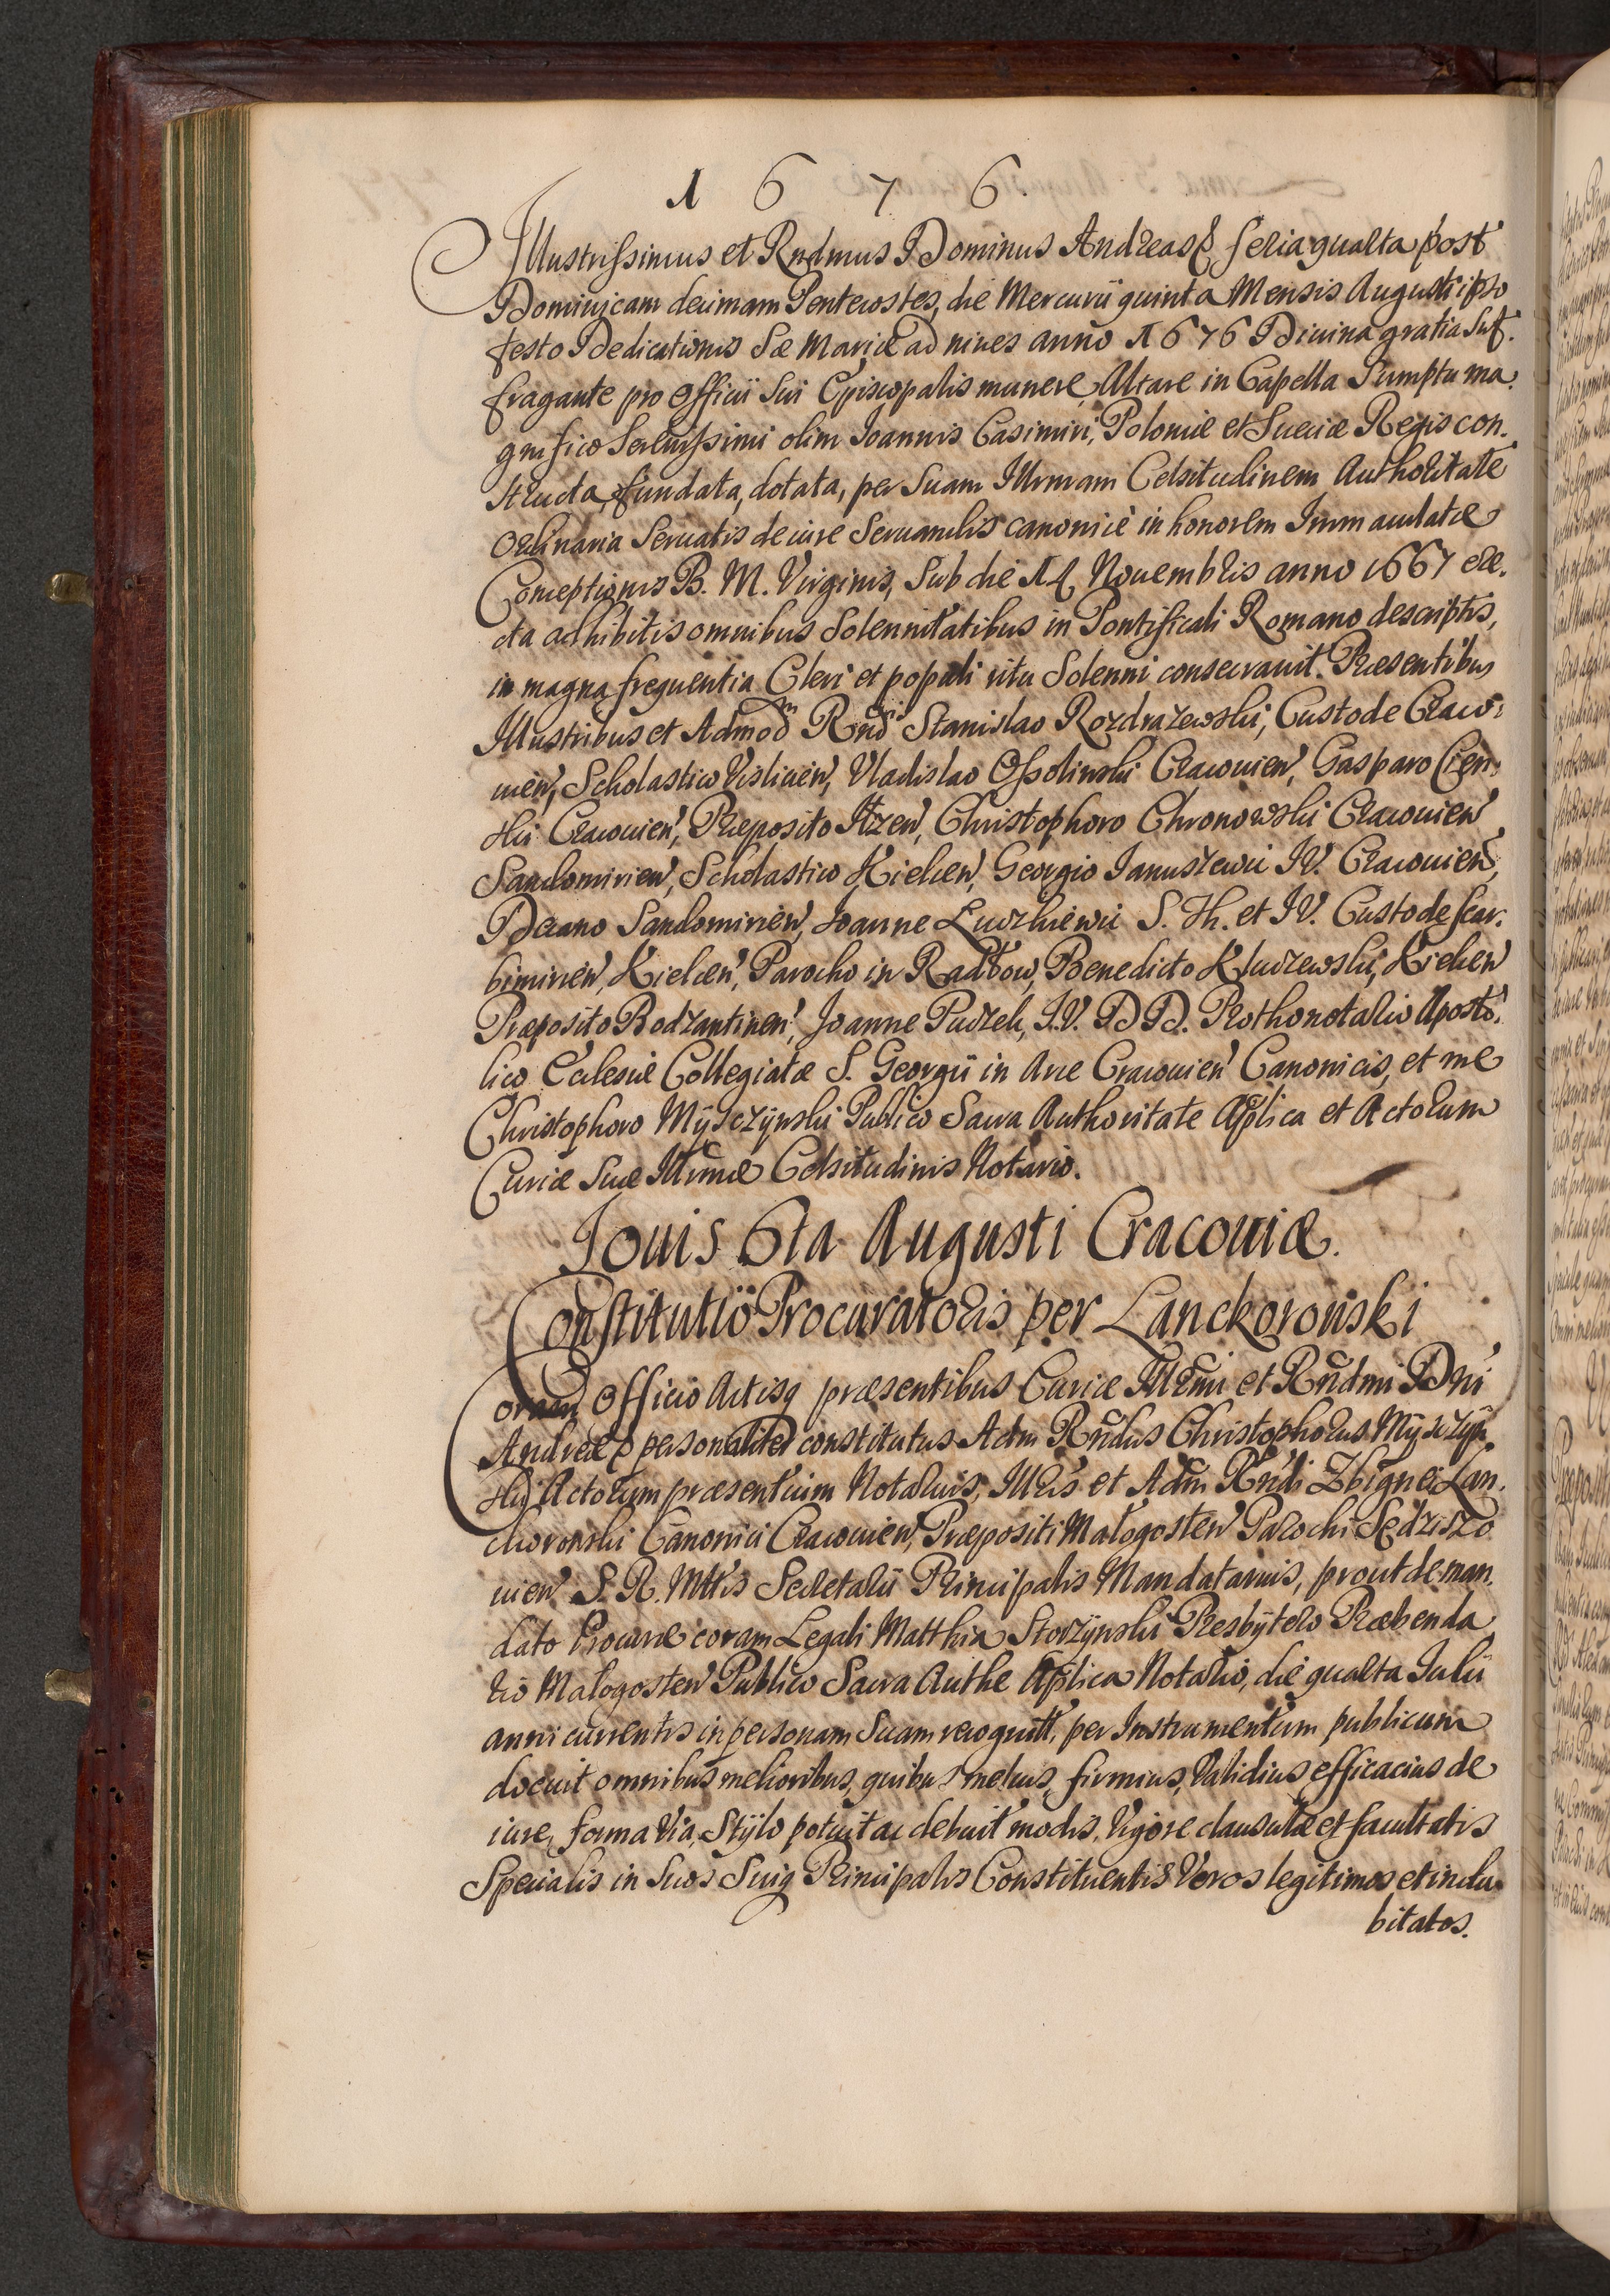 1676.
Illustrissimus et Rndmus Dominus Andreas & feria quarta post
Dominicam decimam Pentecostes, die Mercurii quinta Mensis Augusti ipso
festo Dedicationis Sæ Mariæ ad niues anno 1676 Diuina gratia suf.
fragante pro Officii sui Episcopalis munere, Altare in Capella Sumptu ma.
gnifico Serenissimi olim Joannis Casimiri, Poloniæ et Sueciæ Regis con.
structa, fundata, dotata, per Suam Illmam Celsitudinem Authoritate
Ordinaria Seruatis de iure Seruandis canonicè in honorem Immaculatæ
Conceptionis B. M. Virginis, Sub die Novembris anno 1667 ere.
cta adhibitis omnibus Solennitatibus in Pontificali Romano descriptis,
in magna frequentia Cleri et populi ritu Solenni consecrauit. Præsentibus
Illustribus et Admod Rndis Stanislao Rozdrazewski, Custode Craco:
uien, Scholastico Vislicien, Vladislao Ossolinski Cracouien, Gasparo Cien:
ski Cracouien, Præposito Ilzen, Christophoro Chronowski Cracouien
Sandomirien, Scholastico Kielcen, Georgio Januszewic I.V. Cracouien,
Decano Sandomirien, Joanne Luczkiewic S. Th. et I.V. Custode Scar:
bimirien, Kielcen, Parocho in Radlow, Benedicto Kluczewski, Kielcen
Præposito Bodzantinen, Joanne Pudzek, I.V. DD. Prothonotario Aposto:
lico Ecclesiæ Collegiatæ S. Georgii in Arce Cracouien Canonicis, et me
Christophoro Mÿsczÿnski Publico Sacra Authoritate Aplica et Actorum
Curiæ Suæ Illrmæ Celsitudinis Notario.
Jouis 6ta Augusti Cracouiæ.
Constitutio Procuratoris per Lanckoronski
Coram Officio Actisq præsentibus Curiæ Illrmi et Rndmi Dni
Andreæ & personaliter constitutus Adm Rndus Christophorus Mÿsczÿn
ski Actorum præsentium Notarius, Illris et Adm Rndi Zbignei Lan.
ckoronski Canonici Cracouien, Præpositi Malogosten Parochi Sędziszo
uien S. R. Mttis Secretarii Principalis Mandatarius, prout de man.
dato Procuræ coram Legali Matthia Storzÿnski Presbÿtero Præbenda
rio Malogosten Publico Sacra Authe Aplica Notario, die quarta Julii
anni currentis in personam Suam recognitt. per Instrumentum publicum
docuit omnibus melioribus, quibus melius, firmius, Validius, efficacius de
iure, forma Via, Stÿlo potuit ac debuit modis. Vigore clausulæ et facultatis
Specialis in Suos Suiq Principalis Constituentis Veros legitimos et indu
bitatos.